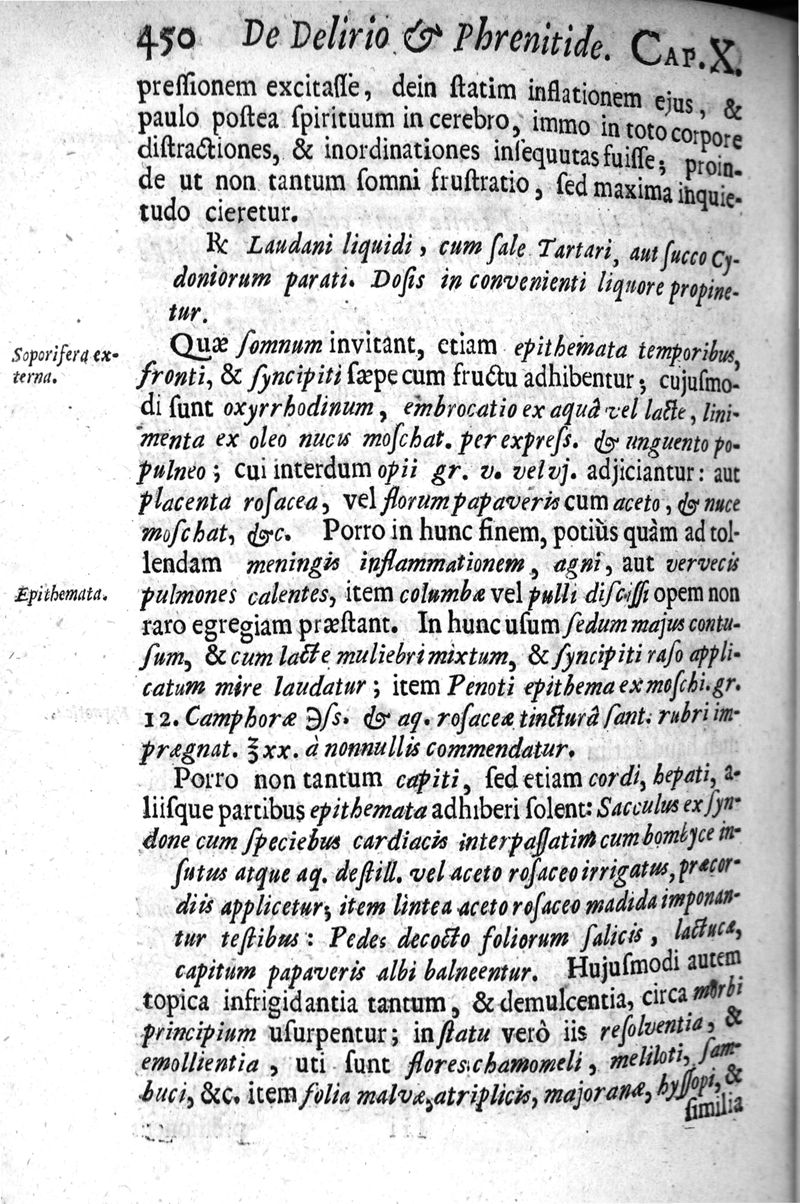 450 De Delirio & Phrenitide. CAP. X.
pressionem excitasse, dein statim inflationem ejus, &
paulo postea spirituum in cerebro, immo in toto corpore
distractiones, & inordinationes insequutas fuisse; proin-
de ut non tantum somni frustratio, sed maxima inquie-
tudo cieretur.
℞ Laudani liquidi, cum sale Tartari, aut succo Cy-
doniorum parati. Dosis in convenienti liquore propine-
tur.
Soporifera ex-
terna.
Quæ somnum invitant, etiam epithemata temporibus,
fronti, & syncipiti sæpe cum fructu adhibentur; cujusmo-
di sunt oxyrrhodinum, embrocatio ex aquâ vel lacte, lini-
menta ex oleo nucis moschat. per express. & unguento po-
pulneo; cui interdum opii gr. v. vel vj. adjiciantur: aut
placenta rosacea, vel florum papaveris cum aceto, & nuce
moschat, &c. Porro in hunc finem, potiùs quàm ad tol-
lendam meningis inflammationem, agni, aut vervecis
Epithemata.
pulmones calentes, item columbæ vel pulli discissi opem non
raro egregiam præstant. In hunc usum sedum majus contu-
sum, & cum lacte muliebri mixtum, & syncipiti raso appli-
catum mire laudatur; item Penoti epithema ex moschi. gr.
12. Camphoræ ℈ſs. & aq. rosaceæ tincturâ sant. rubri im-
prægnat. ℥xx. à nonnullis commendatur.
Porro non tantum capiti, sed etiam cordi, hepati, a-
liisque partibus epithemata adhiberi solent: Sacculus ex syn-
done cum speciebus cardiacis interpassatim cum bombyce in-
sutus atque aq. destill. vel aceto rosaceo irrigatus, præcor-
diis applicetur; item lintea aceto rosaceo madida imponan-
tur testibus: Pedes decocto foliorum salicis, lactucæ,
capitum papaveris albi balneentur. Hujusmodi autem
topica infrigidantia tantum, & demulcentia, circa morbi
principium usurpentur; in statu verò iis resolventia, &
emollientia, uti sunt flores chamomeli, meliloti, sam-
buci, &c. item folia malvæ, atriplicis, majoranæ, hyssopi, &
similia